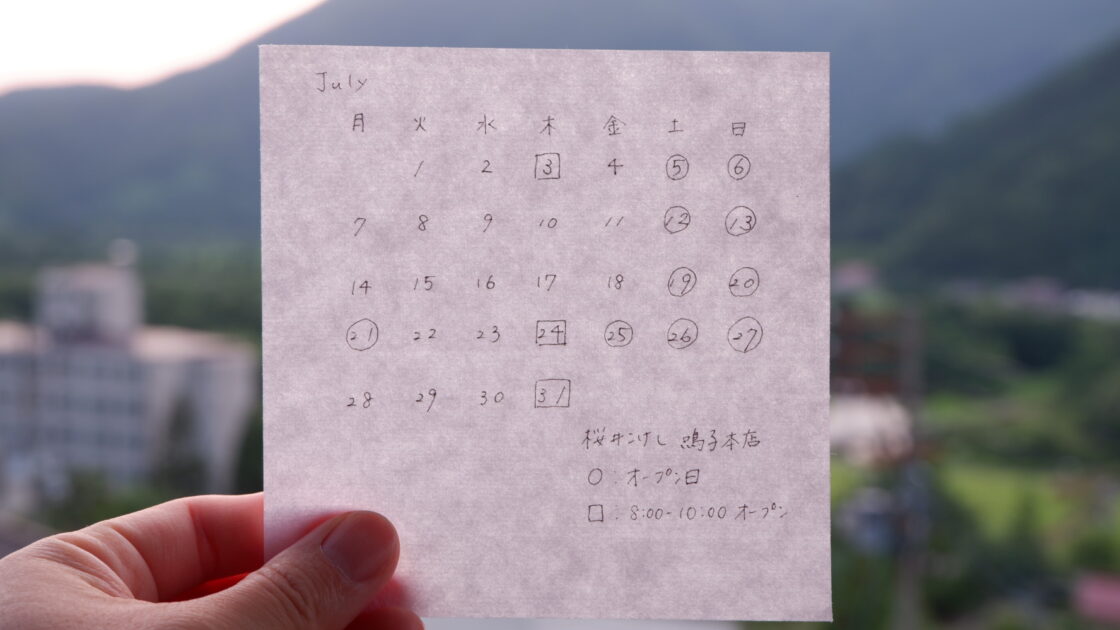 July
月 火 水 木 金 土 日
1 2 3 4 5 6
7 8 9 10 11 12 13
14 15 16 17 18 19 20
21 22 23 24 25 26 27
28 29 30 31
桜井こけし 鳴子本店
○:オープン日
□:8:00-10:00 オープン